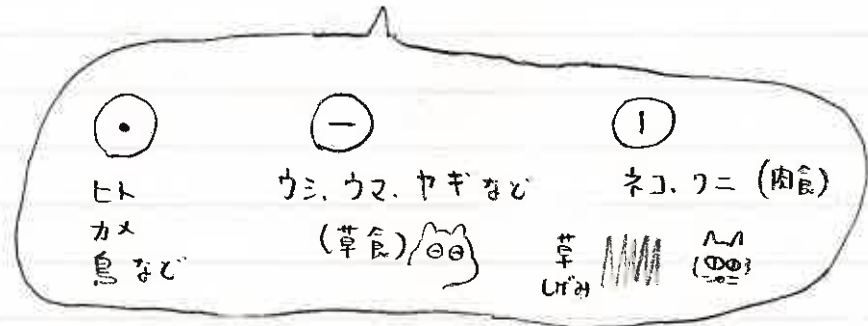 ヒト
カメ
鳥 など
ウシ、ウマ、ヤギなど
(草食)
ネコ、ワニ (肉食)
草
しげみ